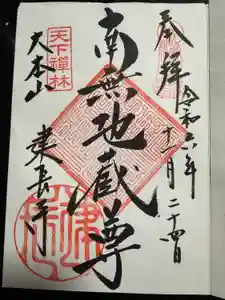 奉拝
令和六年
十一月二十四日
南無地蔵尊
天下禅林
大本山
建長寺